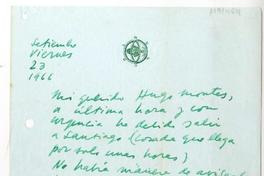 Setiembre
Viernes
23
1966
Mi querido Hugo Montes,
a última hora y con
urgencia he debido salir
a Santiago (
por solo unas horas)
No había manera de avisarle